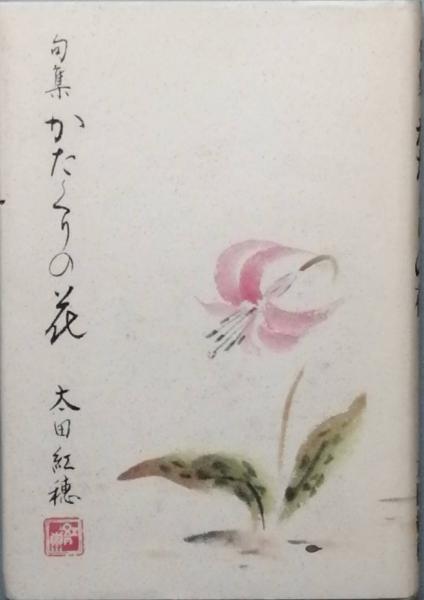 句集 かたくりの花
太田紅穂